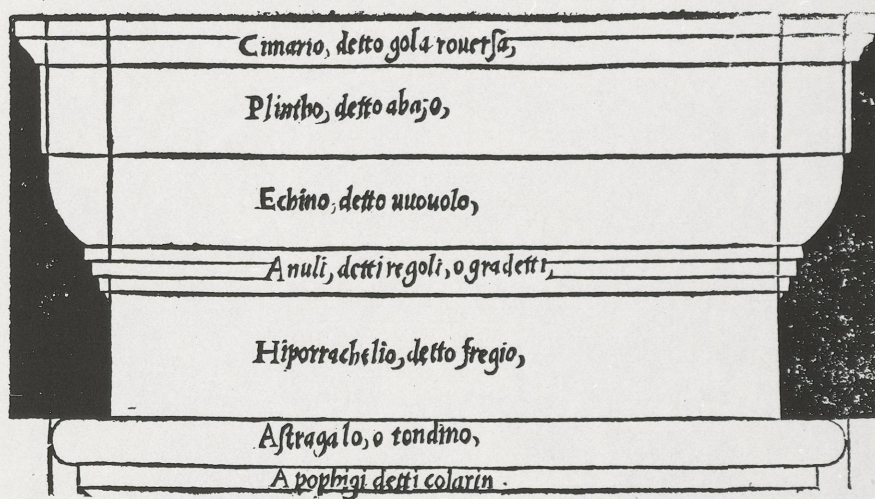 Cimario, detto gola rouerſa,
Plintho, detto abaco,
Echino, detto uuouolo,
Anuli, detti regoli, o gradetti,
Hiporrachelio, detto fregio,
Aſtragalo, o tondino,
Apophigi detti colarin.